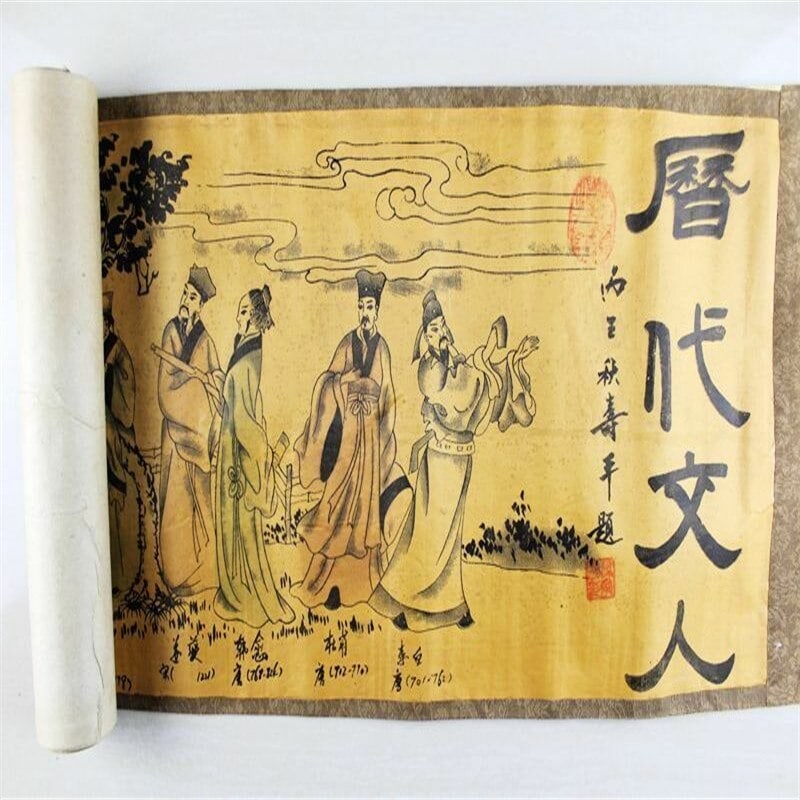 曆代文人
丙壬秋壽平題
李白
唐(701-762)
杜甫
唐(712-770)
韩愈
唐(768-824)
宋(